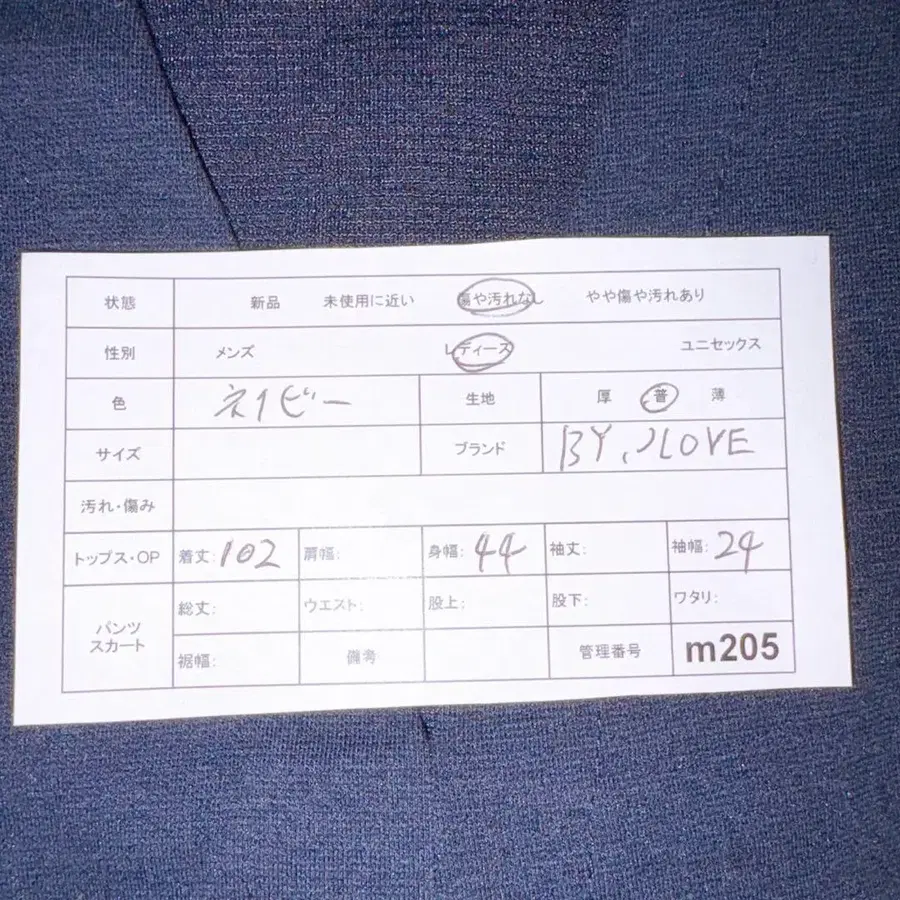 状態 新品 未使用に近い 傷や汚れなし やや傷や汚れあり
性別 メンズ レディース ユニセックス
色 ネイビー 生地 厚 普 薄
サイズ ブランド BY,JLOVE
汚れ・傷み
トップス・OP 着丈:102 肩幅: 身幅:44 袖丈: 袖幅:24
パンツ スカート 総丈: ウエスト: 股上: 股下: ワタリ:
裾幅: 備考 管理番号 m205